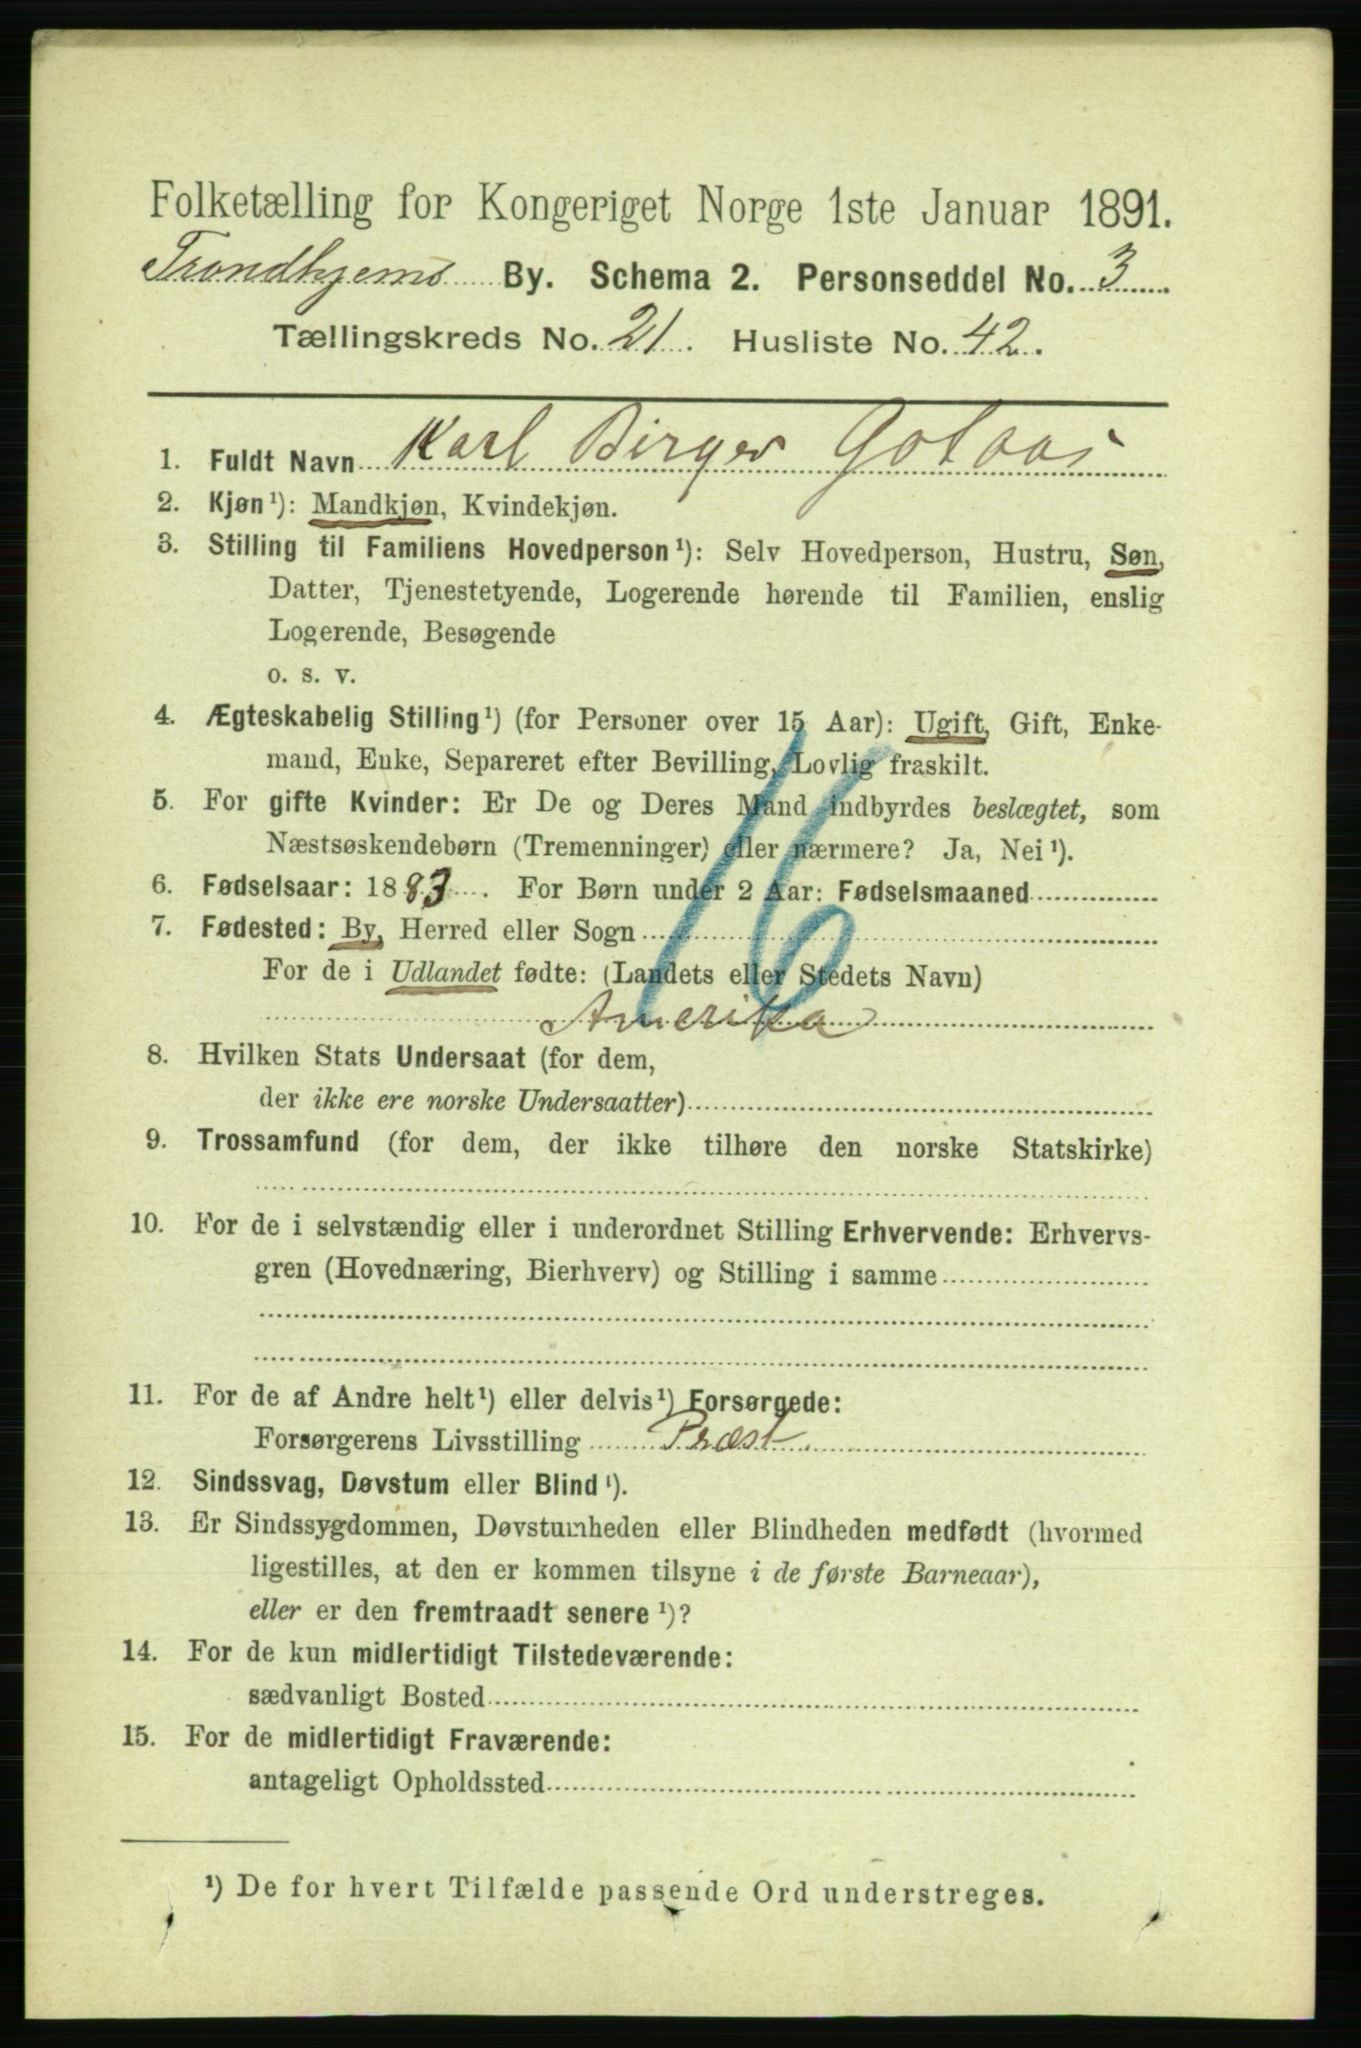 Folketælling for Kongeriget Norge 1ste Januar 1891.
Trondhjems By. Schema 2. Personseddel No. 3
Tællingskreds No. 21. Husliste No. 42.
1. Fuldt Navn Karl Birger Golaas
2. Kjøn¹): Mandkjøn, Kvindekjøn.
3. Stilling til Familiens Hovedperson¹): Selv Hovedperson, Hustru, Søn,
Datter, Tjenestetyende, Logerende hørende til Familien, enslig
Logerende, Besøgende
o. s. v.
4. Ægteskabelig Stilling¹) (for Personer over 15 Aar): Ugift, Gift, Enke-
mand, Enke, Separeret efter Bevilling, Lovlig fraskilt.
5. For gifte Kvinder: Er De og Deres Mand indbyrdes beslægtet, som
Næstsøskendebørn (Tremenninger) eller nærmere? Ja, Nei¹).
16
6. Fødselsaar: 1883. For Børn under 2 Aar: Fødselsmaaned
7. Fødested: By, Herred eller Sogn
For de i Udlandet fødte: (Landets eller Stedets Navn)
Amerika
8. Hvilken Stats Undersaat (for dem,
der ikke ere norske Undersaatter)
9. Trossamfund (for dem, der ikke tilhøre den norske Statskirke)
10. For de i selvstændig eller i underordnet Stilling Erhvervende: Erhvervs-
gren (Hovednæring, Bierhverv) og Stilling i samme
11. For de af Andre helt¹) eller delvis¹) Forsørgede:
Forsørgerens Livsstilling Præst.
12. Sindssvag, Døvstum eller Blind¹).
13. Er Sindssygdommen, Døvstumheden eller Blindheden medfødt (hvormed
ligestilles, at den er kommen tilsyne i de første Barneaar),
eller er den fremtraadt senere¹)?
14. For de kun midlertidigt Tilstedeværende:
sædvanligt Bosted
15. For de midlertidigt Fraværende:
antageligt Opholdssted
¹) De for hvert Tilfælde passende Ord understreges.